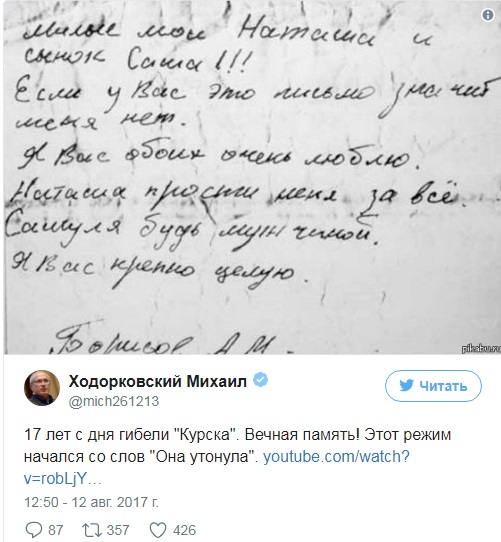 Милые мои Наташа и
сынок Саша!!!
Если у Вас это письмо значит
меня нет.
Я Вас обоих очень люблю.
Наташа прости меня за всё.
Сашуля будь мужчиной.
Я Вас крепко целую.
Борисов А.М.
pikabu.ru
Ходорковский Михаил
@mich261213
Читать
17 лет с дня гибели "Курска". Вечная память! Этот режим
начался со слов "Она утонула". youtube.com/watch?
v=robLjY…
12:50 - 12 авг. 2017 г.
87 357 426